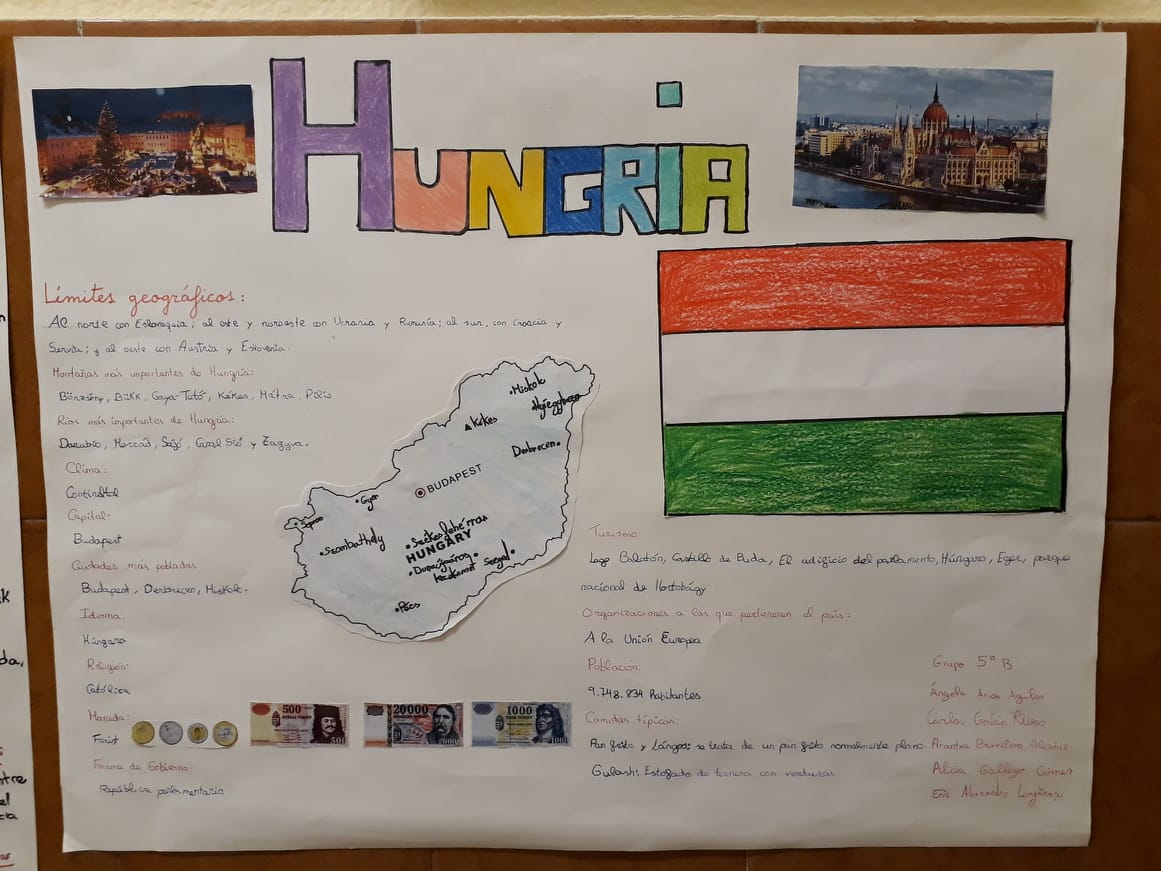 HUNGRiA
Límites geográficos:
Al norte con Eslovaquia; al este y noroeste con Ucrania y Rumanía; al sur, con Croacia y
Servia; y al oeste con Austria y Eslovenia.
Montañas más importantes de Hungría:
Börzsöny, Bükk, Kékes, Mátra,
Ríos más importantes de Hungría:
Danubio, Sajó, y Zagyva.
Clima:
Continental
Capital:
Budapest
Ciudades más pobladas
Budapest, Debrecen, Miskolc.
Idioma:
Húngaro
Religión:
Católica
Moneda:
Forma de Gobierno:
República parlamentaria
Miskolc
Kékes
BUDAPEST
Gyor
Szombathely
HUNGARY
Kecskemet
Szeged
Pécs
500
500
20000
1000
1000
Turismo
Lago Balatón, Castillo de Buda, El edificio del parlamento, Húngaro, Eger, parque
nacional de Hortobágy
Organizaciones a las que pertenecen el país:
A la Unión Europea
Población:
9.748.834 habitantes
Comidas típicas:
Pan frito y Lángos: se trata de un pan frito normalmente plano.
Gulash: Estofado de ternera con verduras
Grupo 5º B
Ángela Arias Aguilar
Carla Galán
Arantxa
Alicia Gallego Gómez
Alexandra